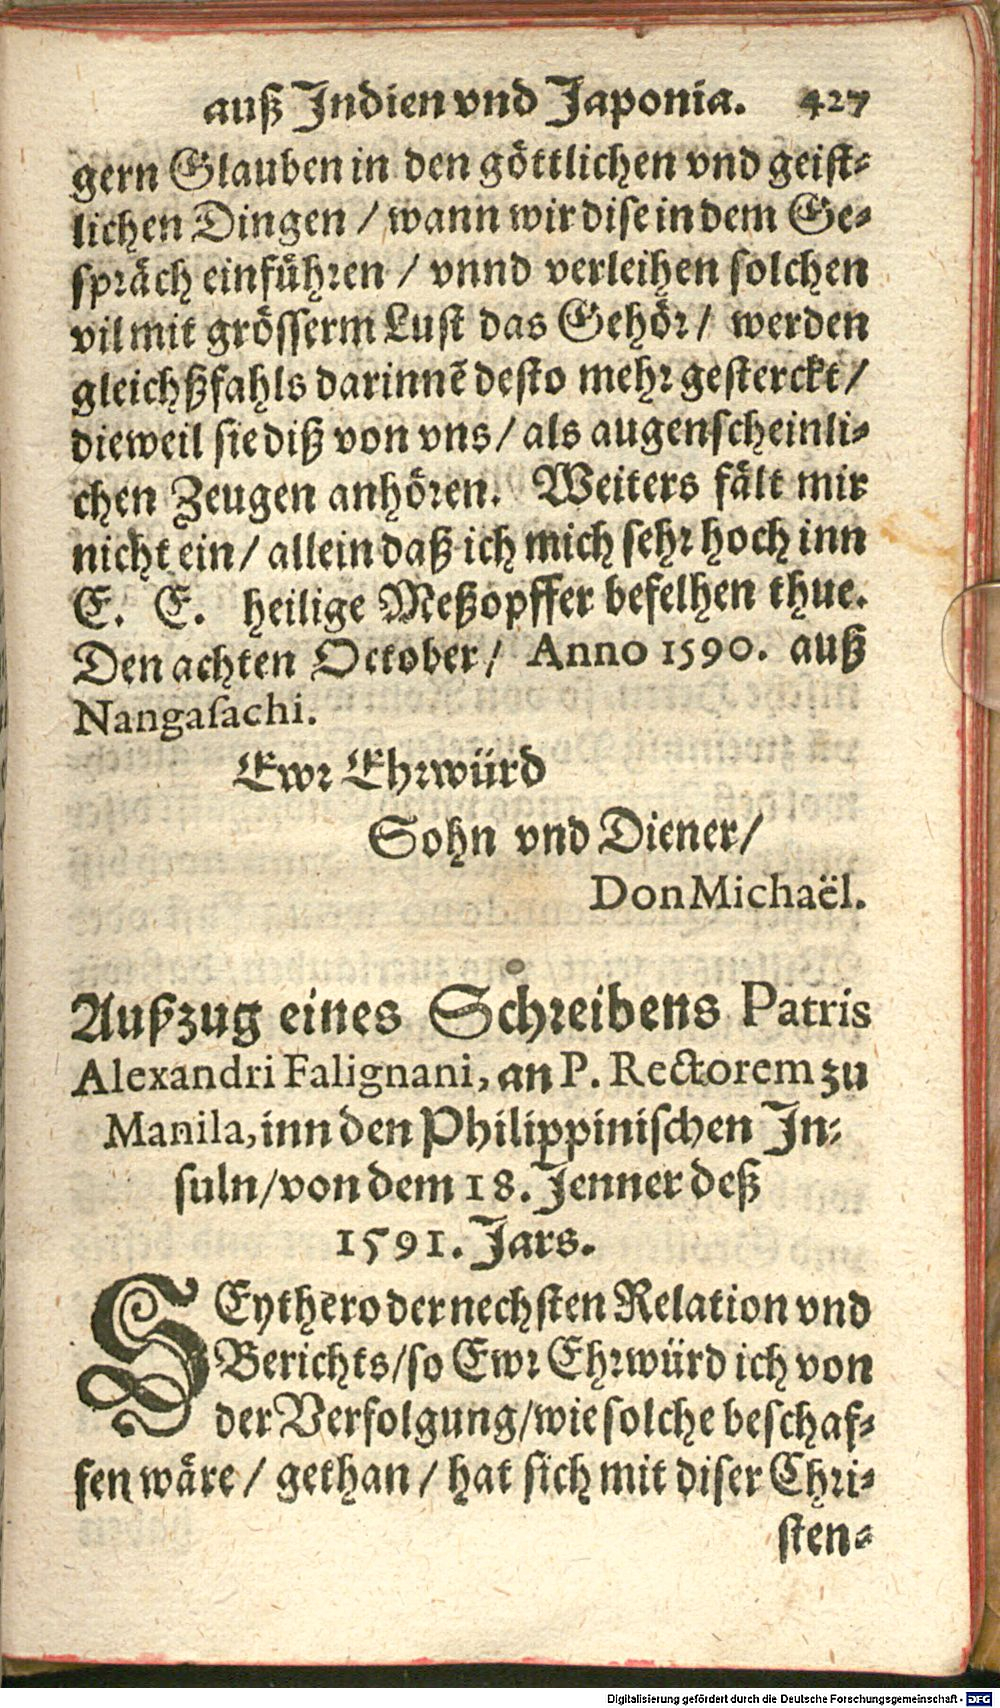 auß Indien vnd Japonia. 427
gern Glauben in den göttlichen vnd geist-
lichen Dingen / wann wir dise in dem Ge-
spräch einführen / vnnd verleihen solchen
vil mit grösserm Lust das Gehör / werden
gleichßfahls darinnē desto mehr gesterckt /
dieweil sie diß von vns / als augenscheinli-
chen Zeugen anhören. Weiters fält mir
nicht ein / allein daß ich mich sehr hoch inn
E. E. heilige Meßopffer befelhen thue.
Den achten October / Anno 1590. auß
Nangaſachi.
Ewr Ehrwürd
Sohn vnd Diener /
Don Michaël.
Außzug eines Schreibens Patris
Alexandri Falignani, an P. Rectorem zu
Manila, inn den Philippinischen In-
suln / von dem 18. Jenner deß
1591. Jars.
SEythero der nechsten Relation vnd
Berichts / so Ewr Ehrwürd ich von
der Verfolgung / wie solche beschaf-
fen wäre / gethan / hat sich mit diser Chri-
sten-
Digitalisierung gefördert durch die Deutsche Forschungsgemeinschaft - DFG